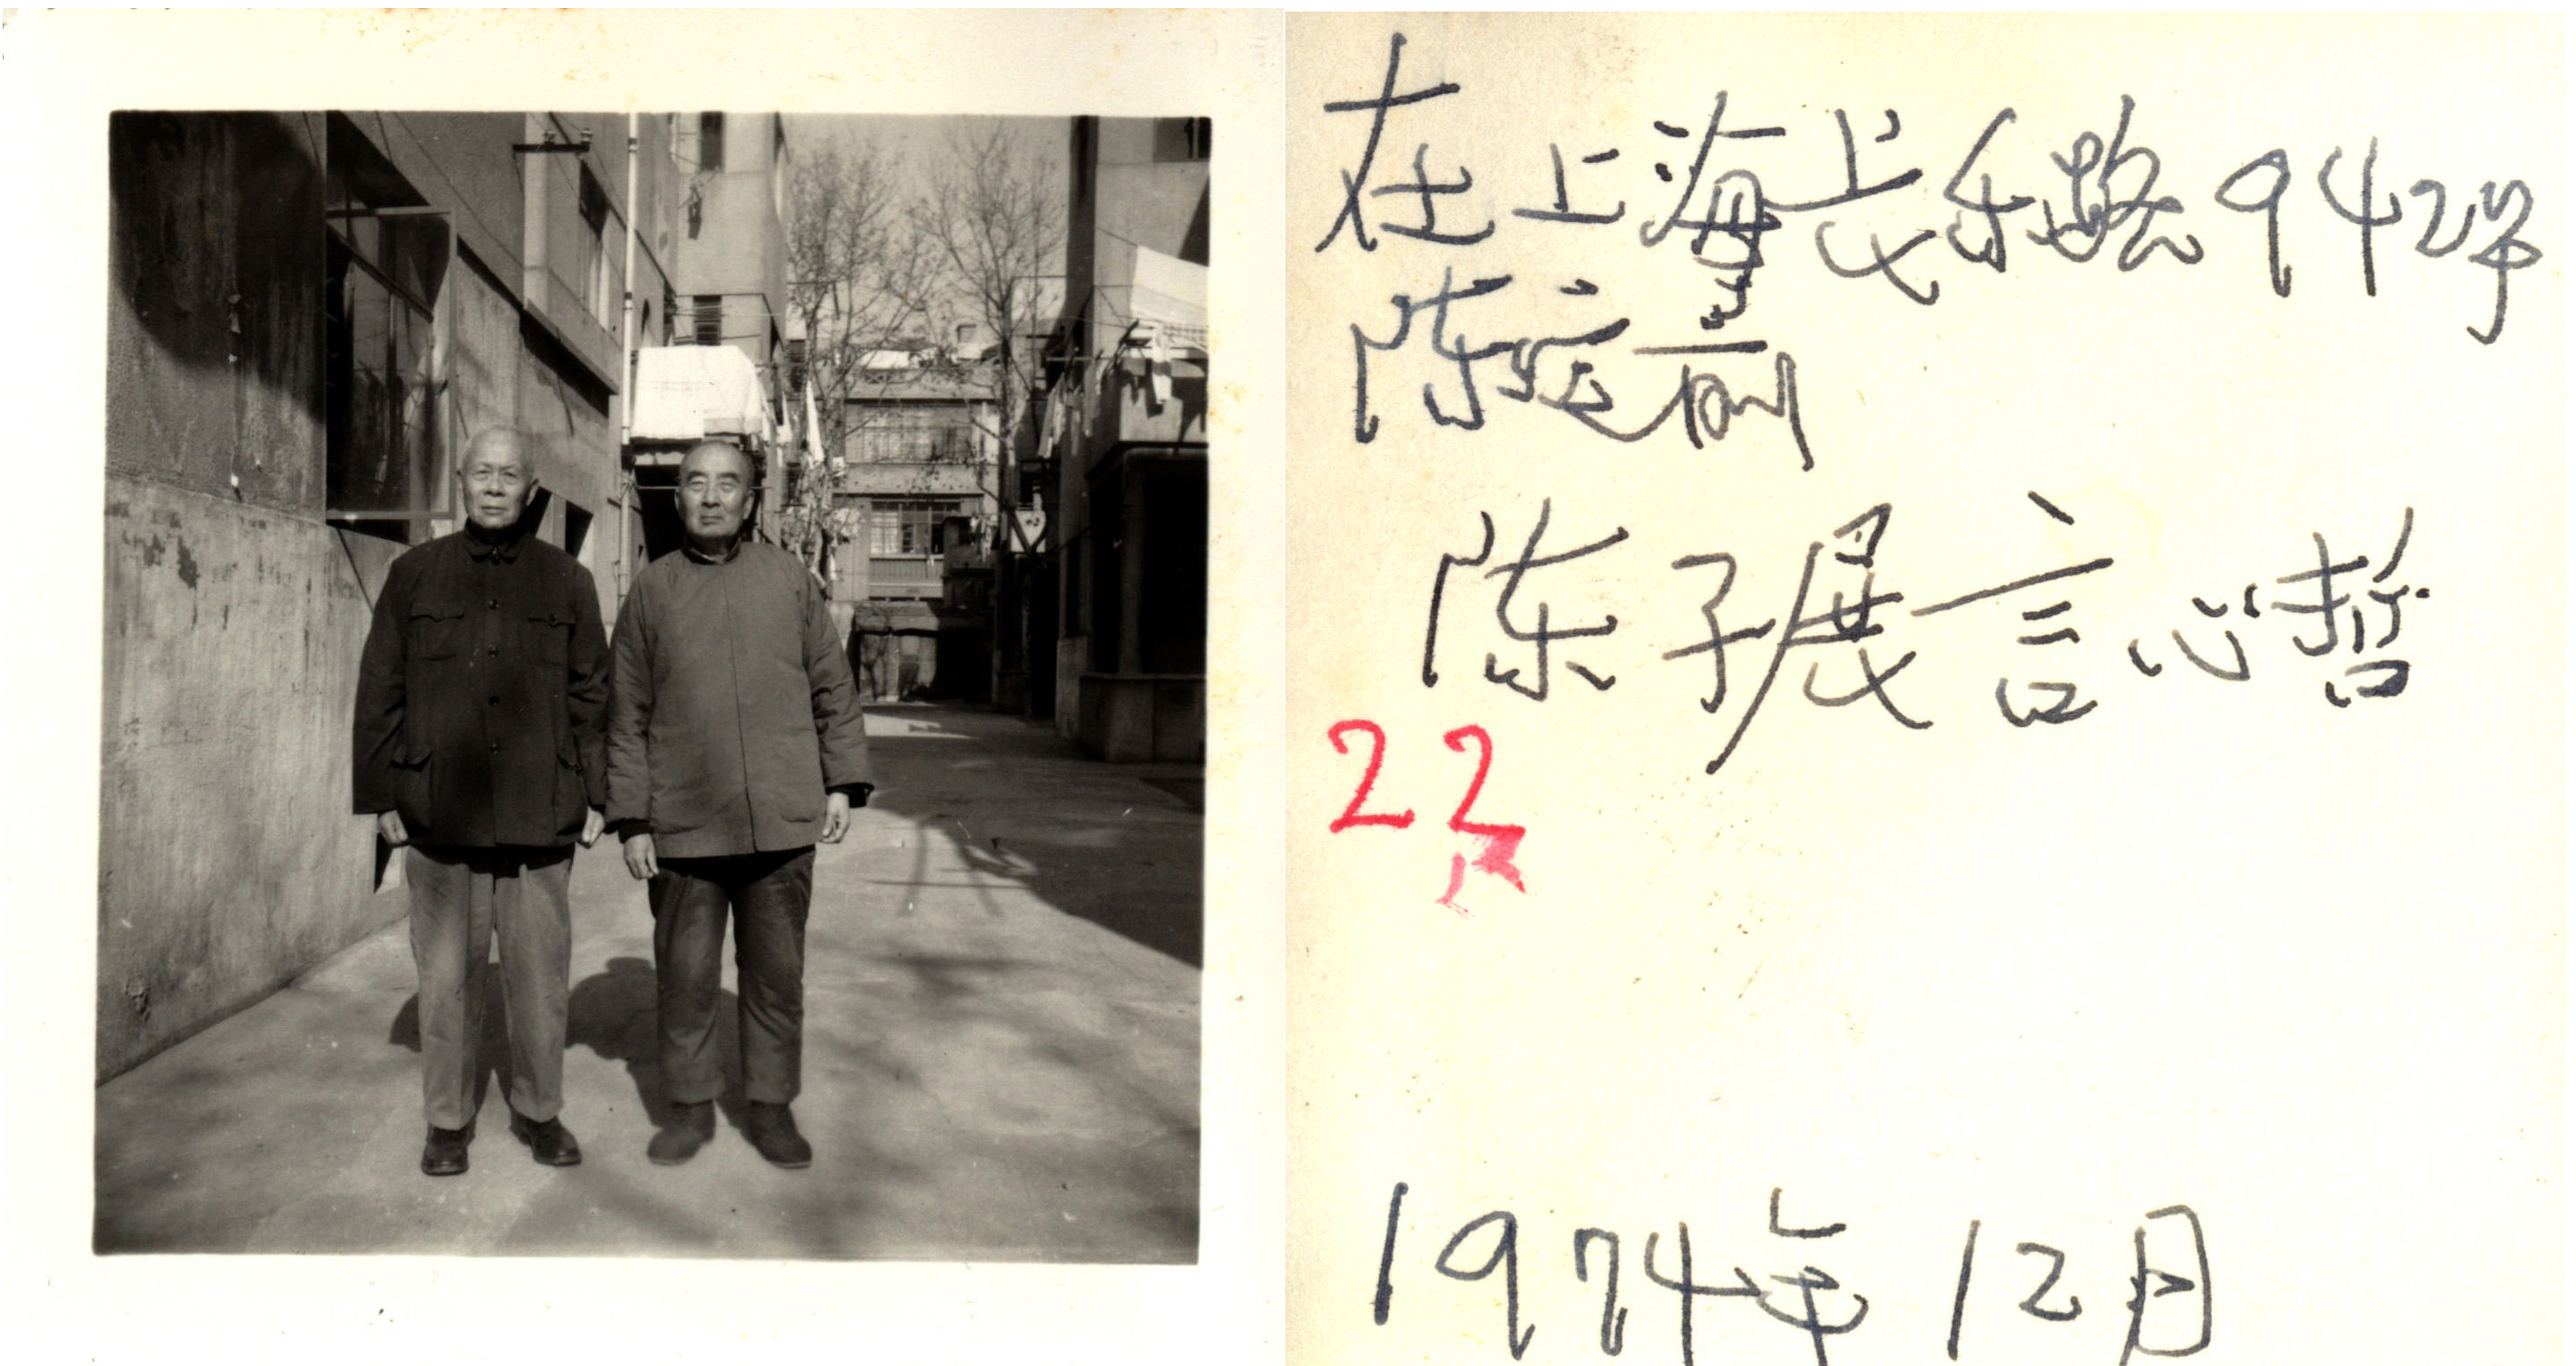 在上海长乐路942号
陈 前
陈子展 言心哲
22
1974年12月